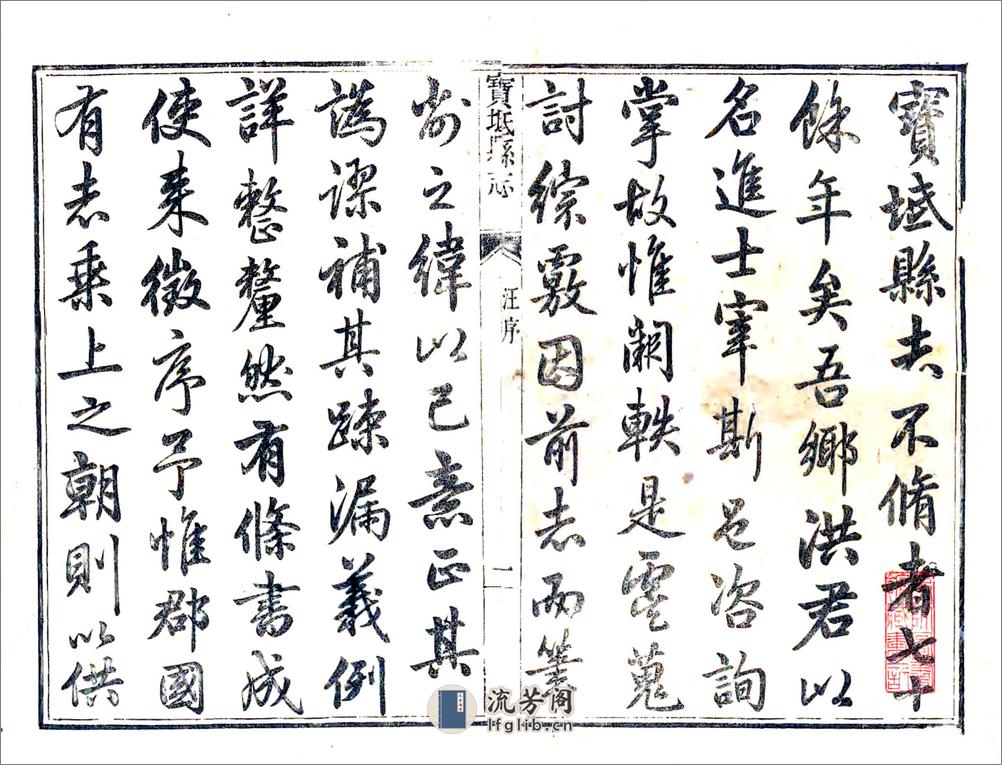 寶坻縣志不脩者七十
餘年矣吾鄉洪君以
名進士宰斯邑咨詢
掌故惟闕軼是虞蒐
討綜覈因前志而筆
削之緯以己意正其
譌謬補其疎漏義例
詳整釐然有條書成
使來徵序予惟郡國
有志乘上之朝則以供
寶坻縣志
汪序
二
流芳阁
lfglib.cn